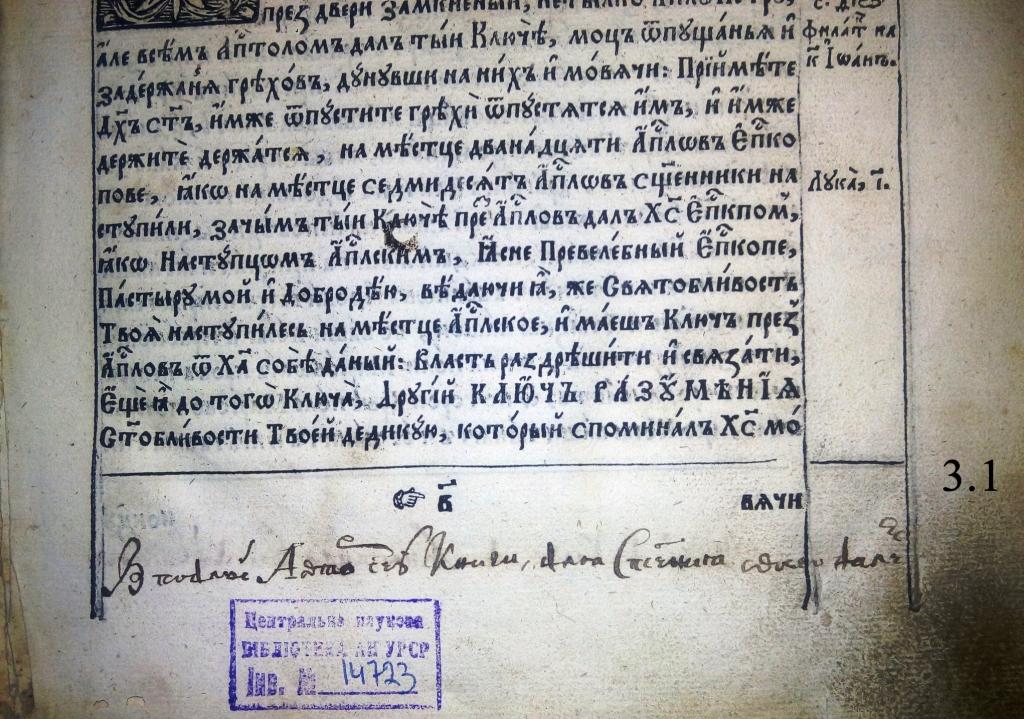 през двери замкненыи, не тылко
але всѣмъ Ап҃толомъ далъ тыи Ключѣ, моцъ ѿпущанья и
задержаня грѣховъ, дунувши на нихъ и мовячи: Пріймѣте
Дх҃ъ ст҃ъ, имже ѿпустите грѣхи ѿпустятся имъ, и имже
держите держатся, на мѣстце дванадцяти Ап҃лѡвъ Еп҃ко
пове, ꙗкѡ на мѣстце седмидесятъ Ап҃лѡвъ сщ҃енники на
ступили, зачымъ тыи Ключѣ пре Ап҃ловъ далъ Хс҃ Еп҃кпом,
ꙗкѡ Наступцѡмъ Ап҃лскимъ, Ꙗсне Превелебный Еп҃копе,
Пастыру мой и Добродѣю, вѣдаючи ꙗ, же Святобливость
Твоя наступилесь на мѣстце Ап҃лское, и маешъ Ключъ през
Ап҃ловъ ѿ Ха҃ собѣ даный: Власть раздрѣшити и связати,
Еще ꙗ до тогѡ Ключа, Другій КЛЮЧЪ РАЗУМѢНІЯ
Ст҃обливости Твоей дедикую, который споминалъ Хс҃ мо
☞ в҃
вячи
филат на
к҃ Іѡанъ.
Лука, і҃.
3.1
Центральна наукова
БІБЛІОТЕКА АН УРСР
Інв. № 14723